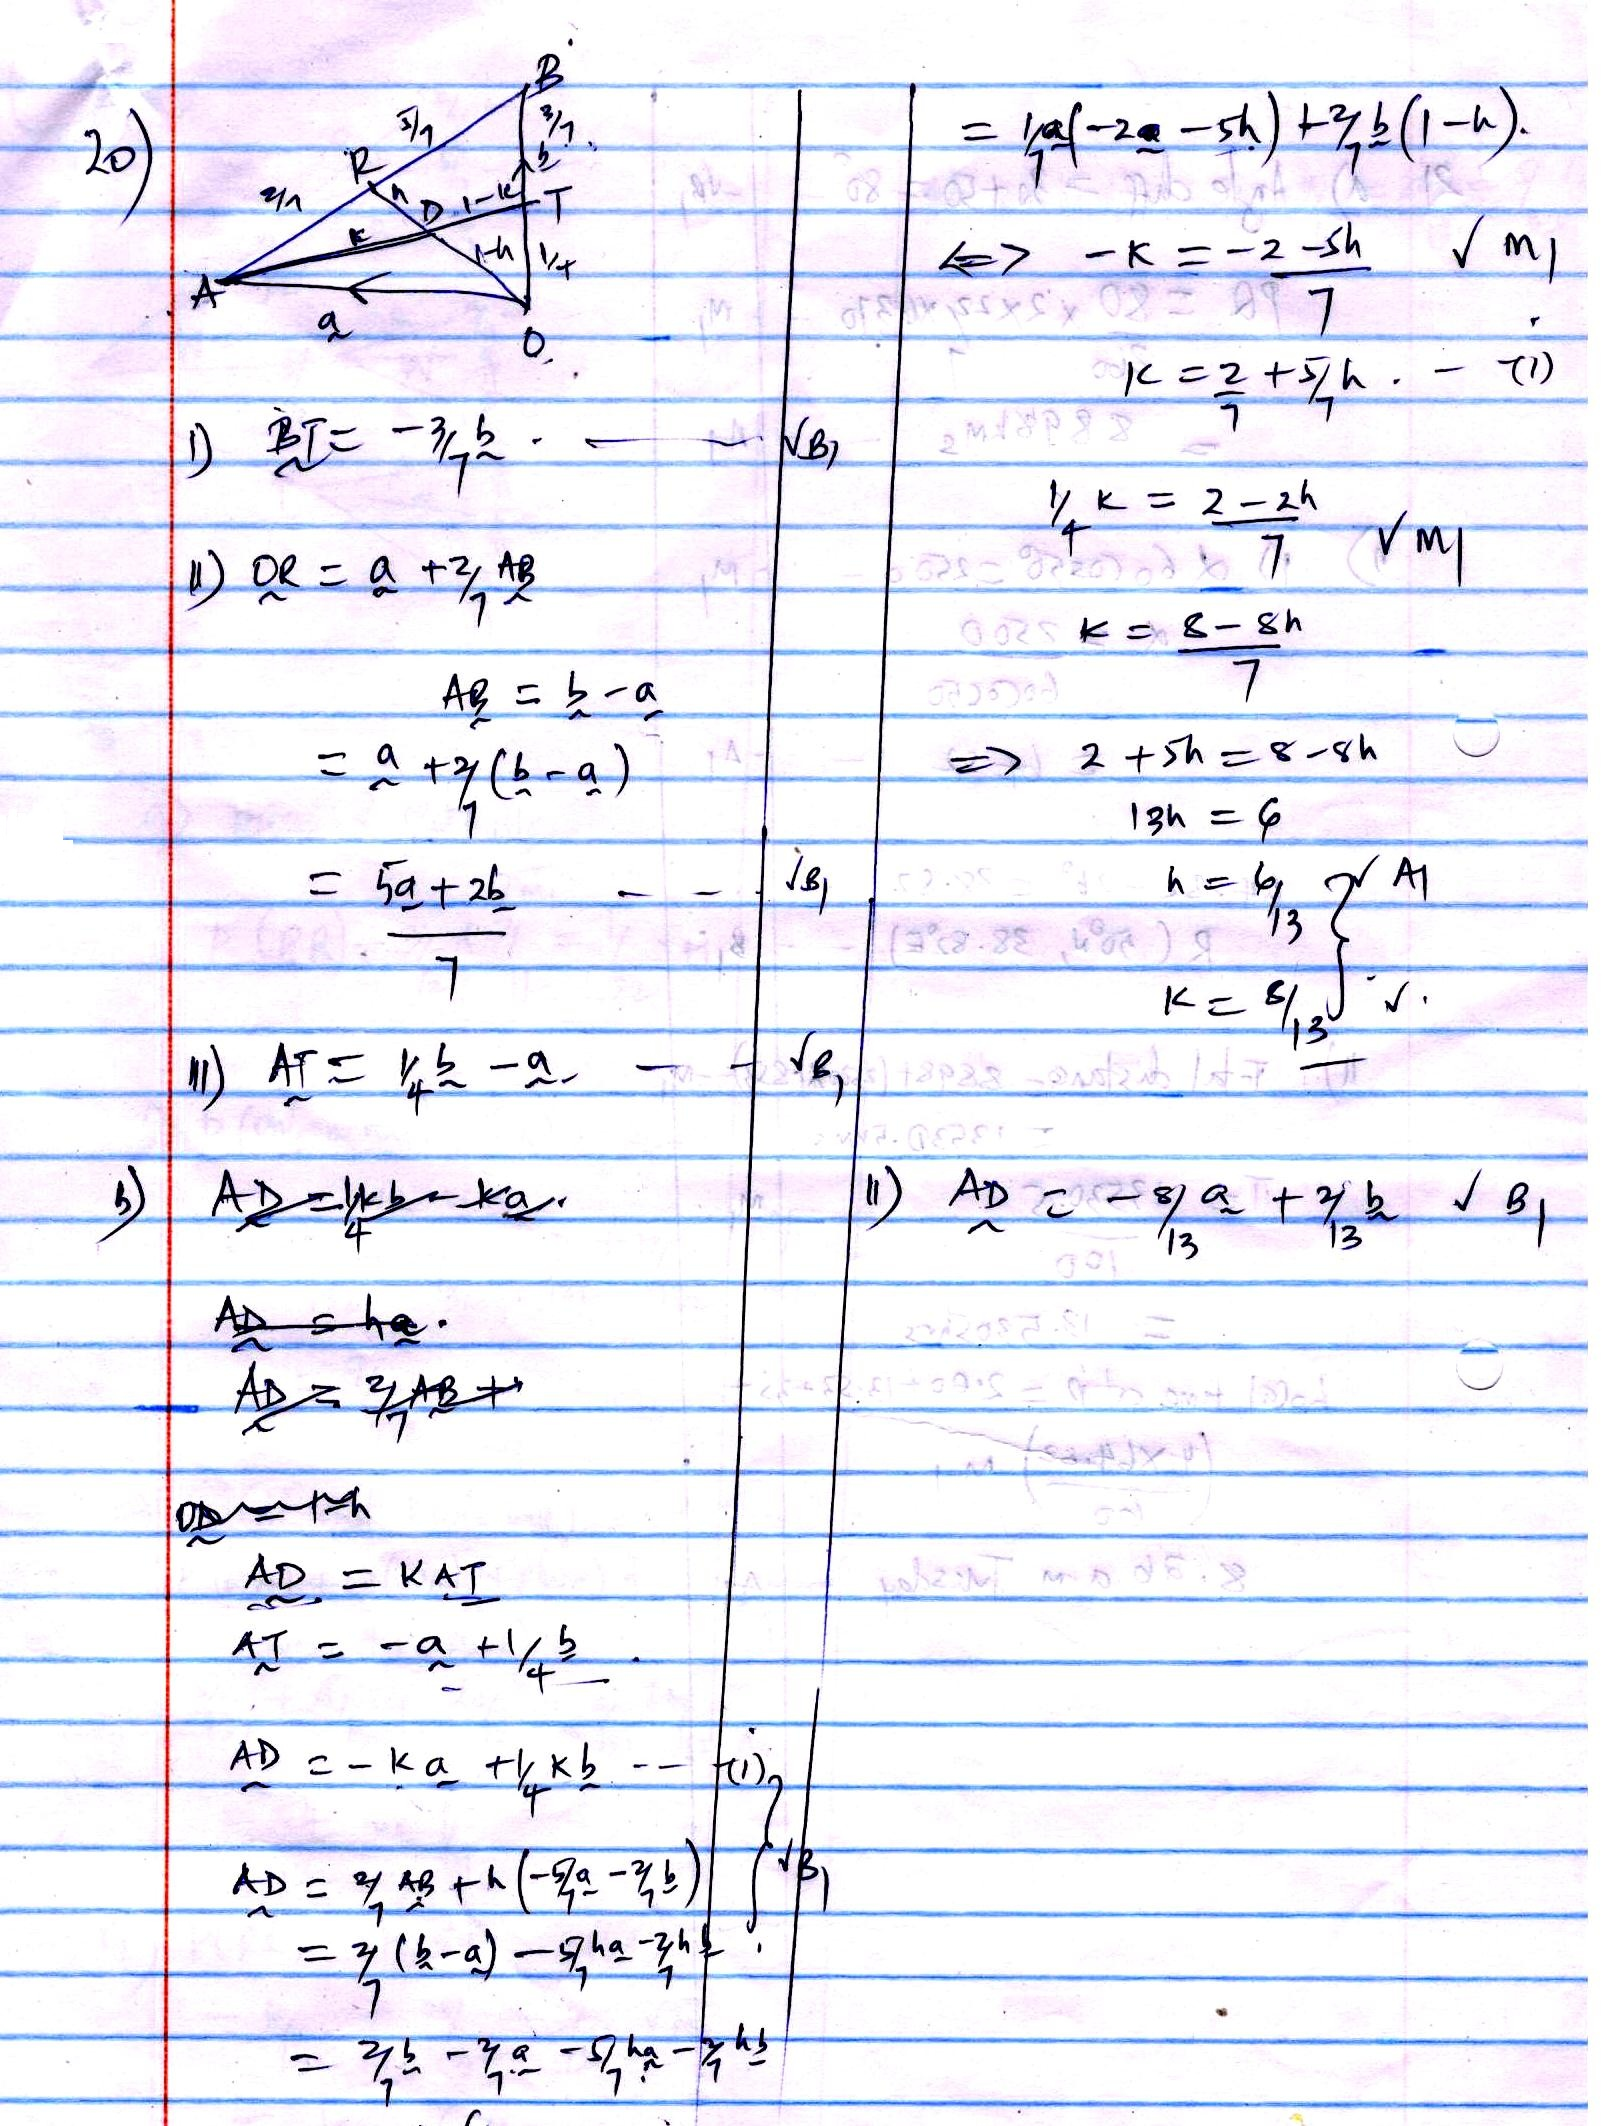 20)
B
5/7
3/7
b
R
2/7
h
D
1-k
T
k
1-h
1/4
A
a
O
i) BT = -3/7 b. — √B1
ii) OR = a + 2/7 AB
AB = b - a
= a + 2/7 (b - a)
= 5a + 2b - - √B1
7
iii) AT = 1/4 b - a. - - √B1
b) AD = 1/4 kb - ka.
AD = ha.
AD = 2/7 AB +
OD = 1-h
AD = K AT
AT = -a + 1/4 b.
AD = -ka + 1/4 kb --- (i)
AD = 2/7 AB + h(-5/7 a - 2/7 b) √B1
= 2/7 (b - a) - 5/7 ha - 2/7 hb.
= 2/7 b - 2/7 a - 5/7 ha - 2/7 hb
= 1/7 a(-2a - 5h) + 2/7 b(1-h).
<=> -k = -2-5h √ M1
7
k = 2/7 + 5/7 h. - (1)
1/4 k = 2-2h √ M1
7
k = 8-8h
7
=> 2 + 5h = 8-8h
13h = 6
h = 6/13 √ A1
k = 8/13 √.
ii) AD = -8/13 a + 2/13 b √ B1